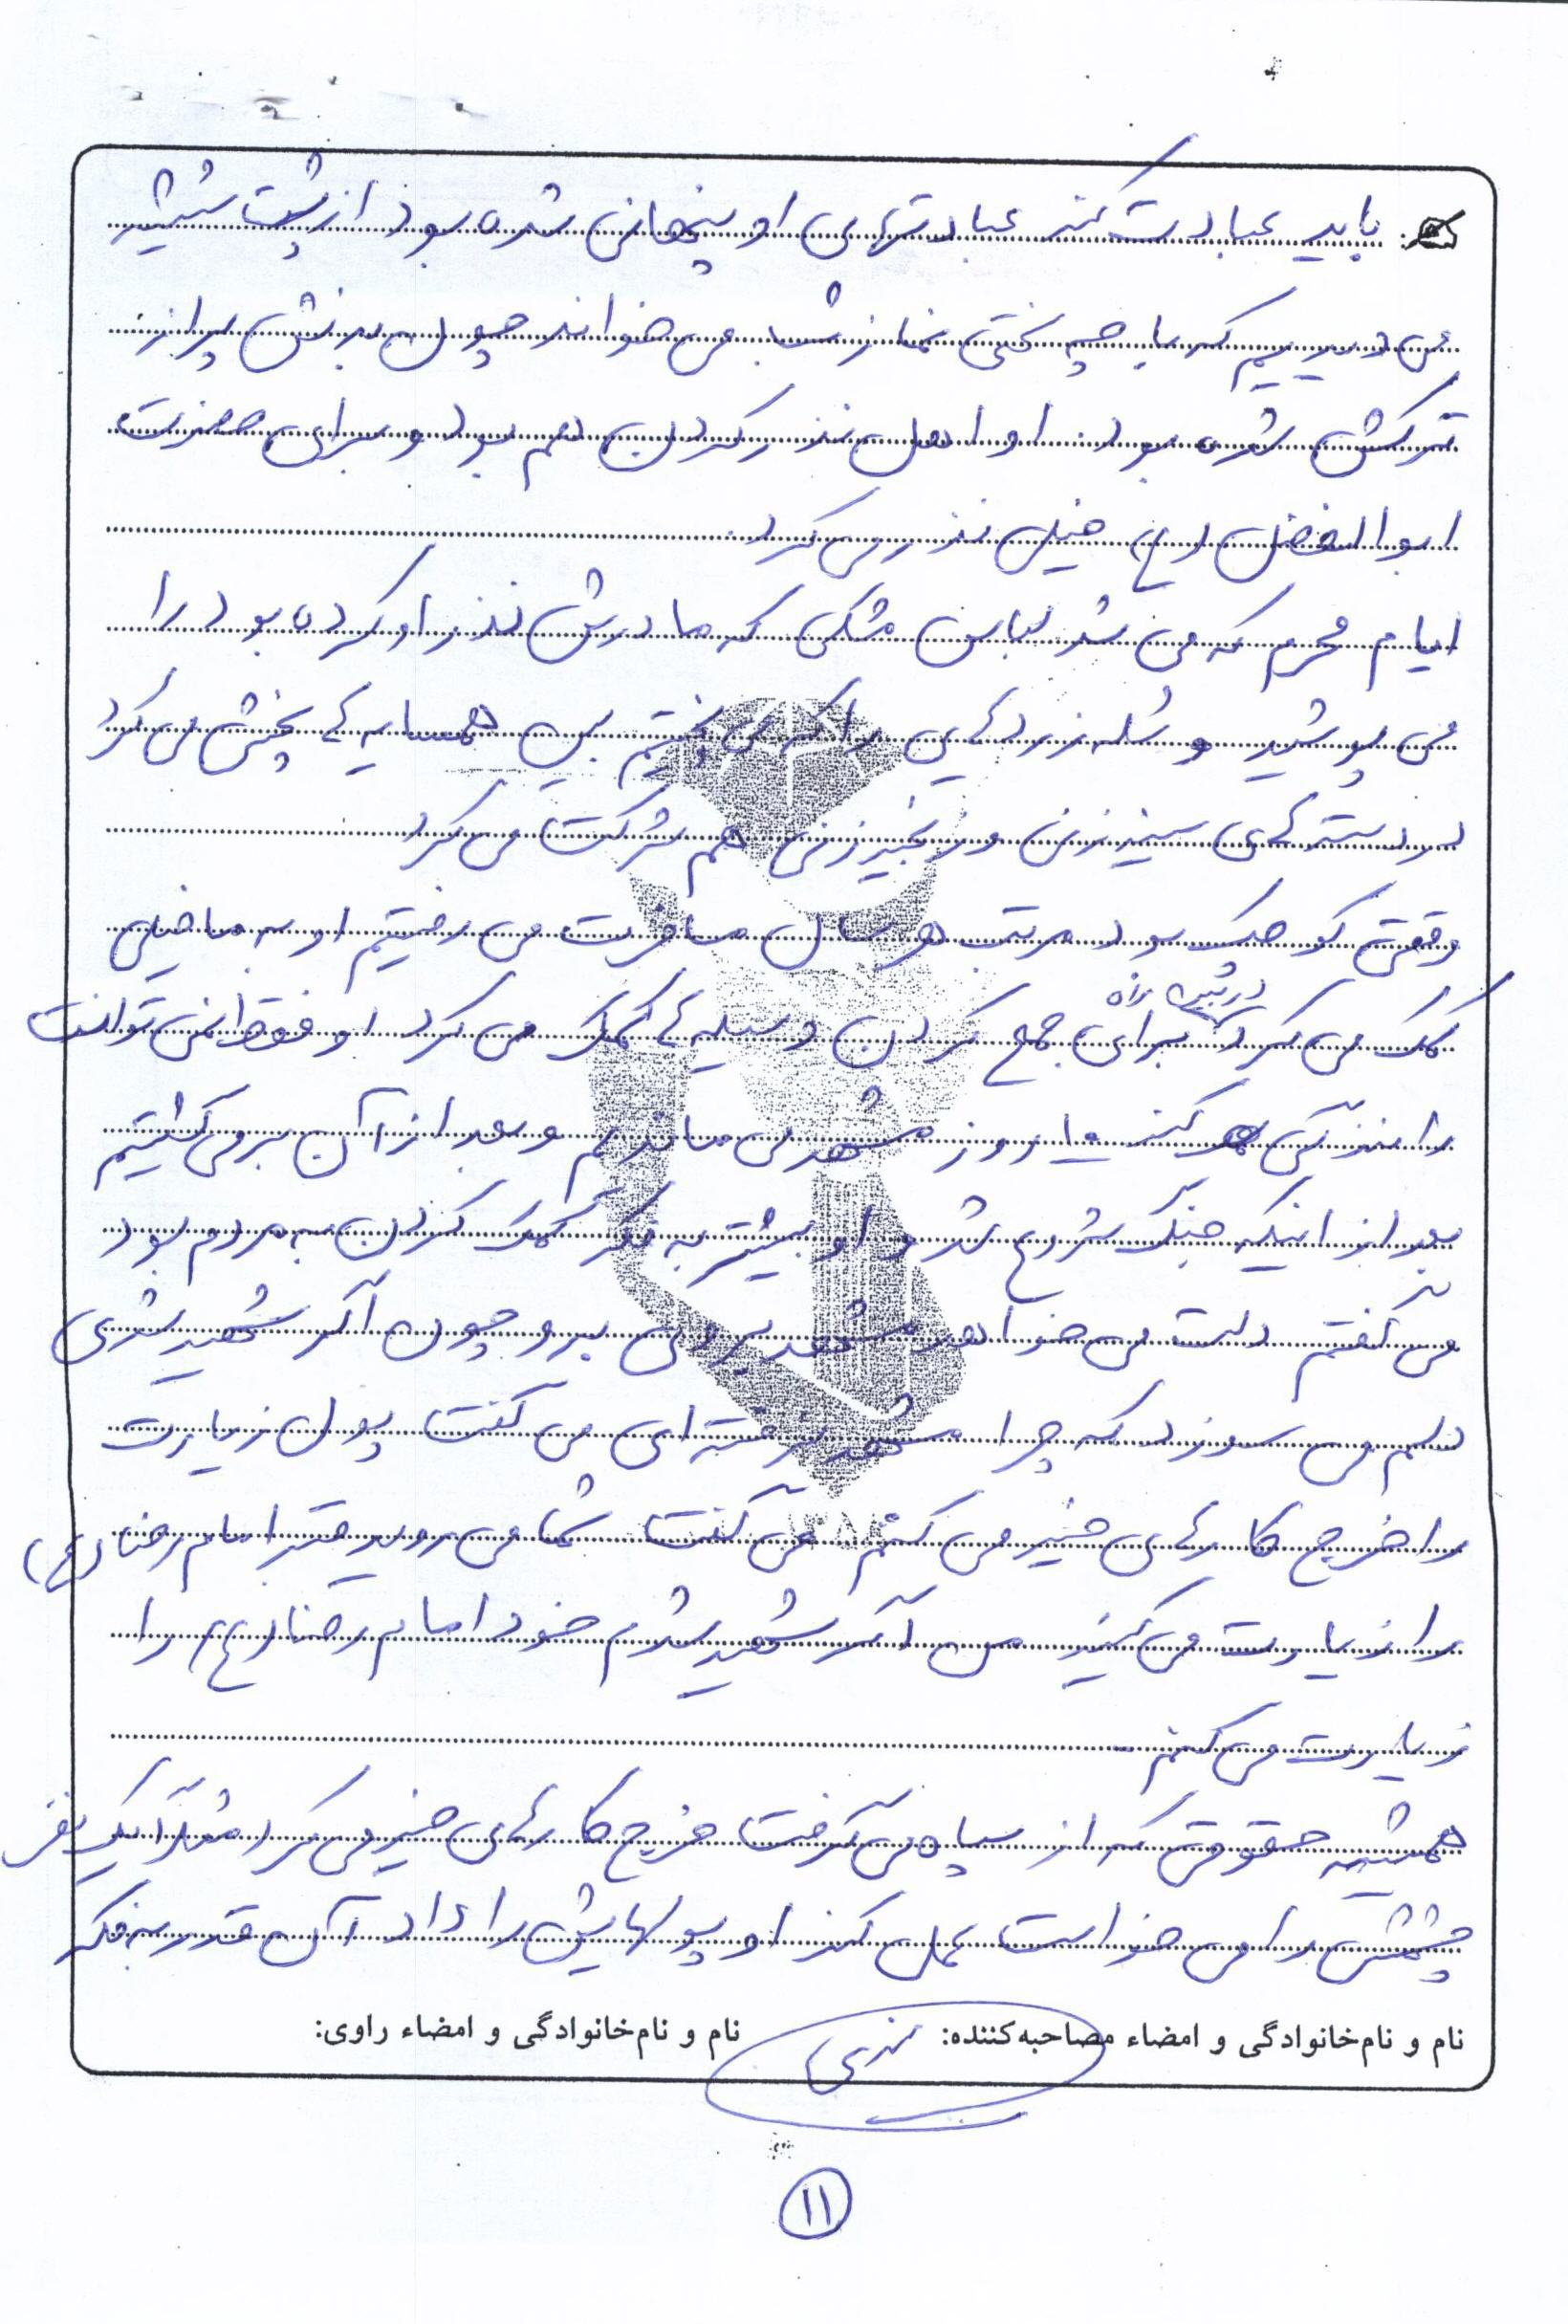 باید عبادت کند عبادتهای او پنهانی شده بود از پشت شیشه
می دیدیم که با چه سختی نماز شب می خواند چون بدنش پر از
ترکش شده بود. او اهل نذر کردن هم بود و برای حضرت
ابوالفضل (ع) خیلی نذر می کرد.
ایام محرم که می شد لباس مشکی که مادرش نذر او کرده بود را
می پوشید و شله زردهایی را که می پختیم بین همسایه ها پخش می کرد
در دسته های سینه زنی و زنجیرزنی هم شرکت می کرد.
وقتی کوچک بود مرتب هر سال مسافرت می رفتیم او به ما خیلی
کمک می کرد در بین راه برای جمع کردن وسیله ها کمک می کرد او فقط نمی توانست
رانندگی کند ۱۰ روز مشهد می ماندیم و بعد از آن برمی گشتیم
بعد از اینکه جنگ شروع شد او بیشتر به فکر کمک کردن به مردم بود
می گفتم دلت می خواهد مشهد بروی برو چون اگر شهید شدی
دلم می سوزد که چرا مشهد نرفته ای می گفت پول زیارت
را خرج کارهای خیر می کنم می گفت شما می روید قبر امام رضا (ع)
را زیارت می کنید من اگر شهید شدم خود امام رضا (ع) را
زیارت می کنم.
همیشه حقوقی که از سپاه می گرفت خرج کارهای خیر می کرد مثلاً یک نفر
چشمش را می خواست عمل کند او پولهایش را داد آن قدر به فکر
نام و نام‌خانوادگی و امضاء مصاحبه‌کننده: نام و نام‌خانوادگی و امضاء راوی:
۱۱